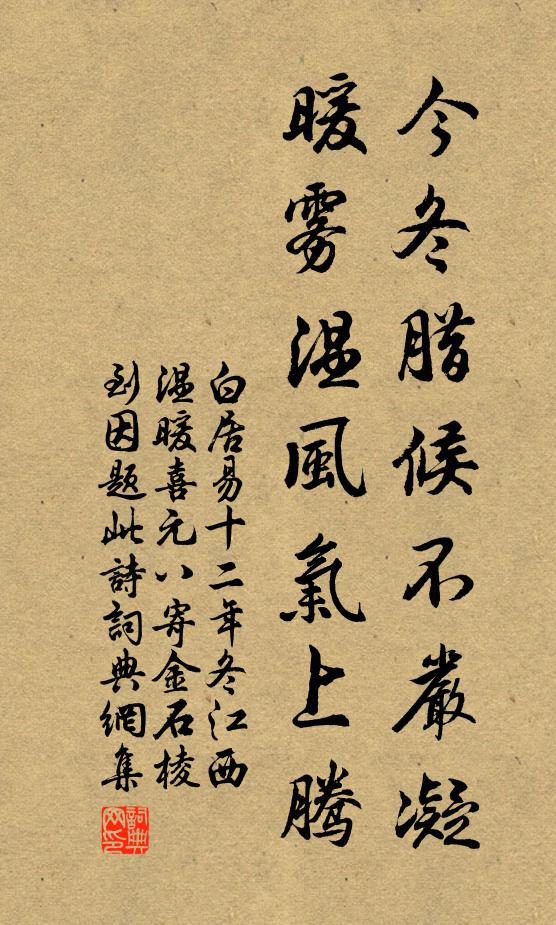 今冬腊候不嚴凝
暖雾温風氣上騰
白居易十二年冬江西
温暖喜元八寄金石棱
到因题此詩詞典網集
詞典
网印